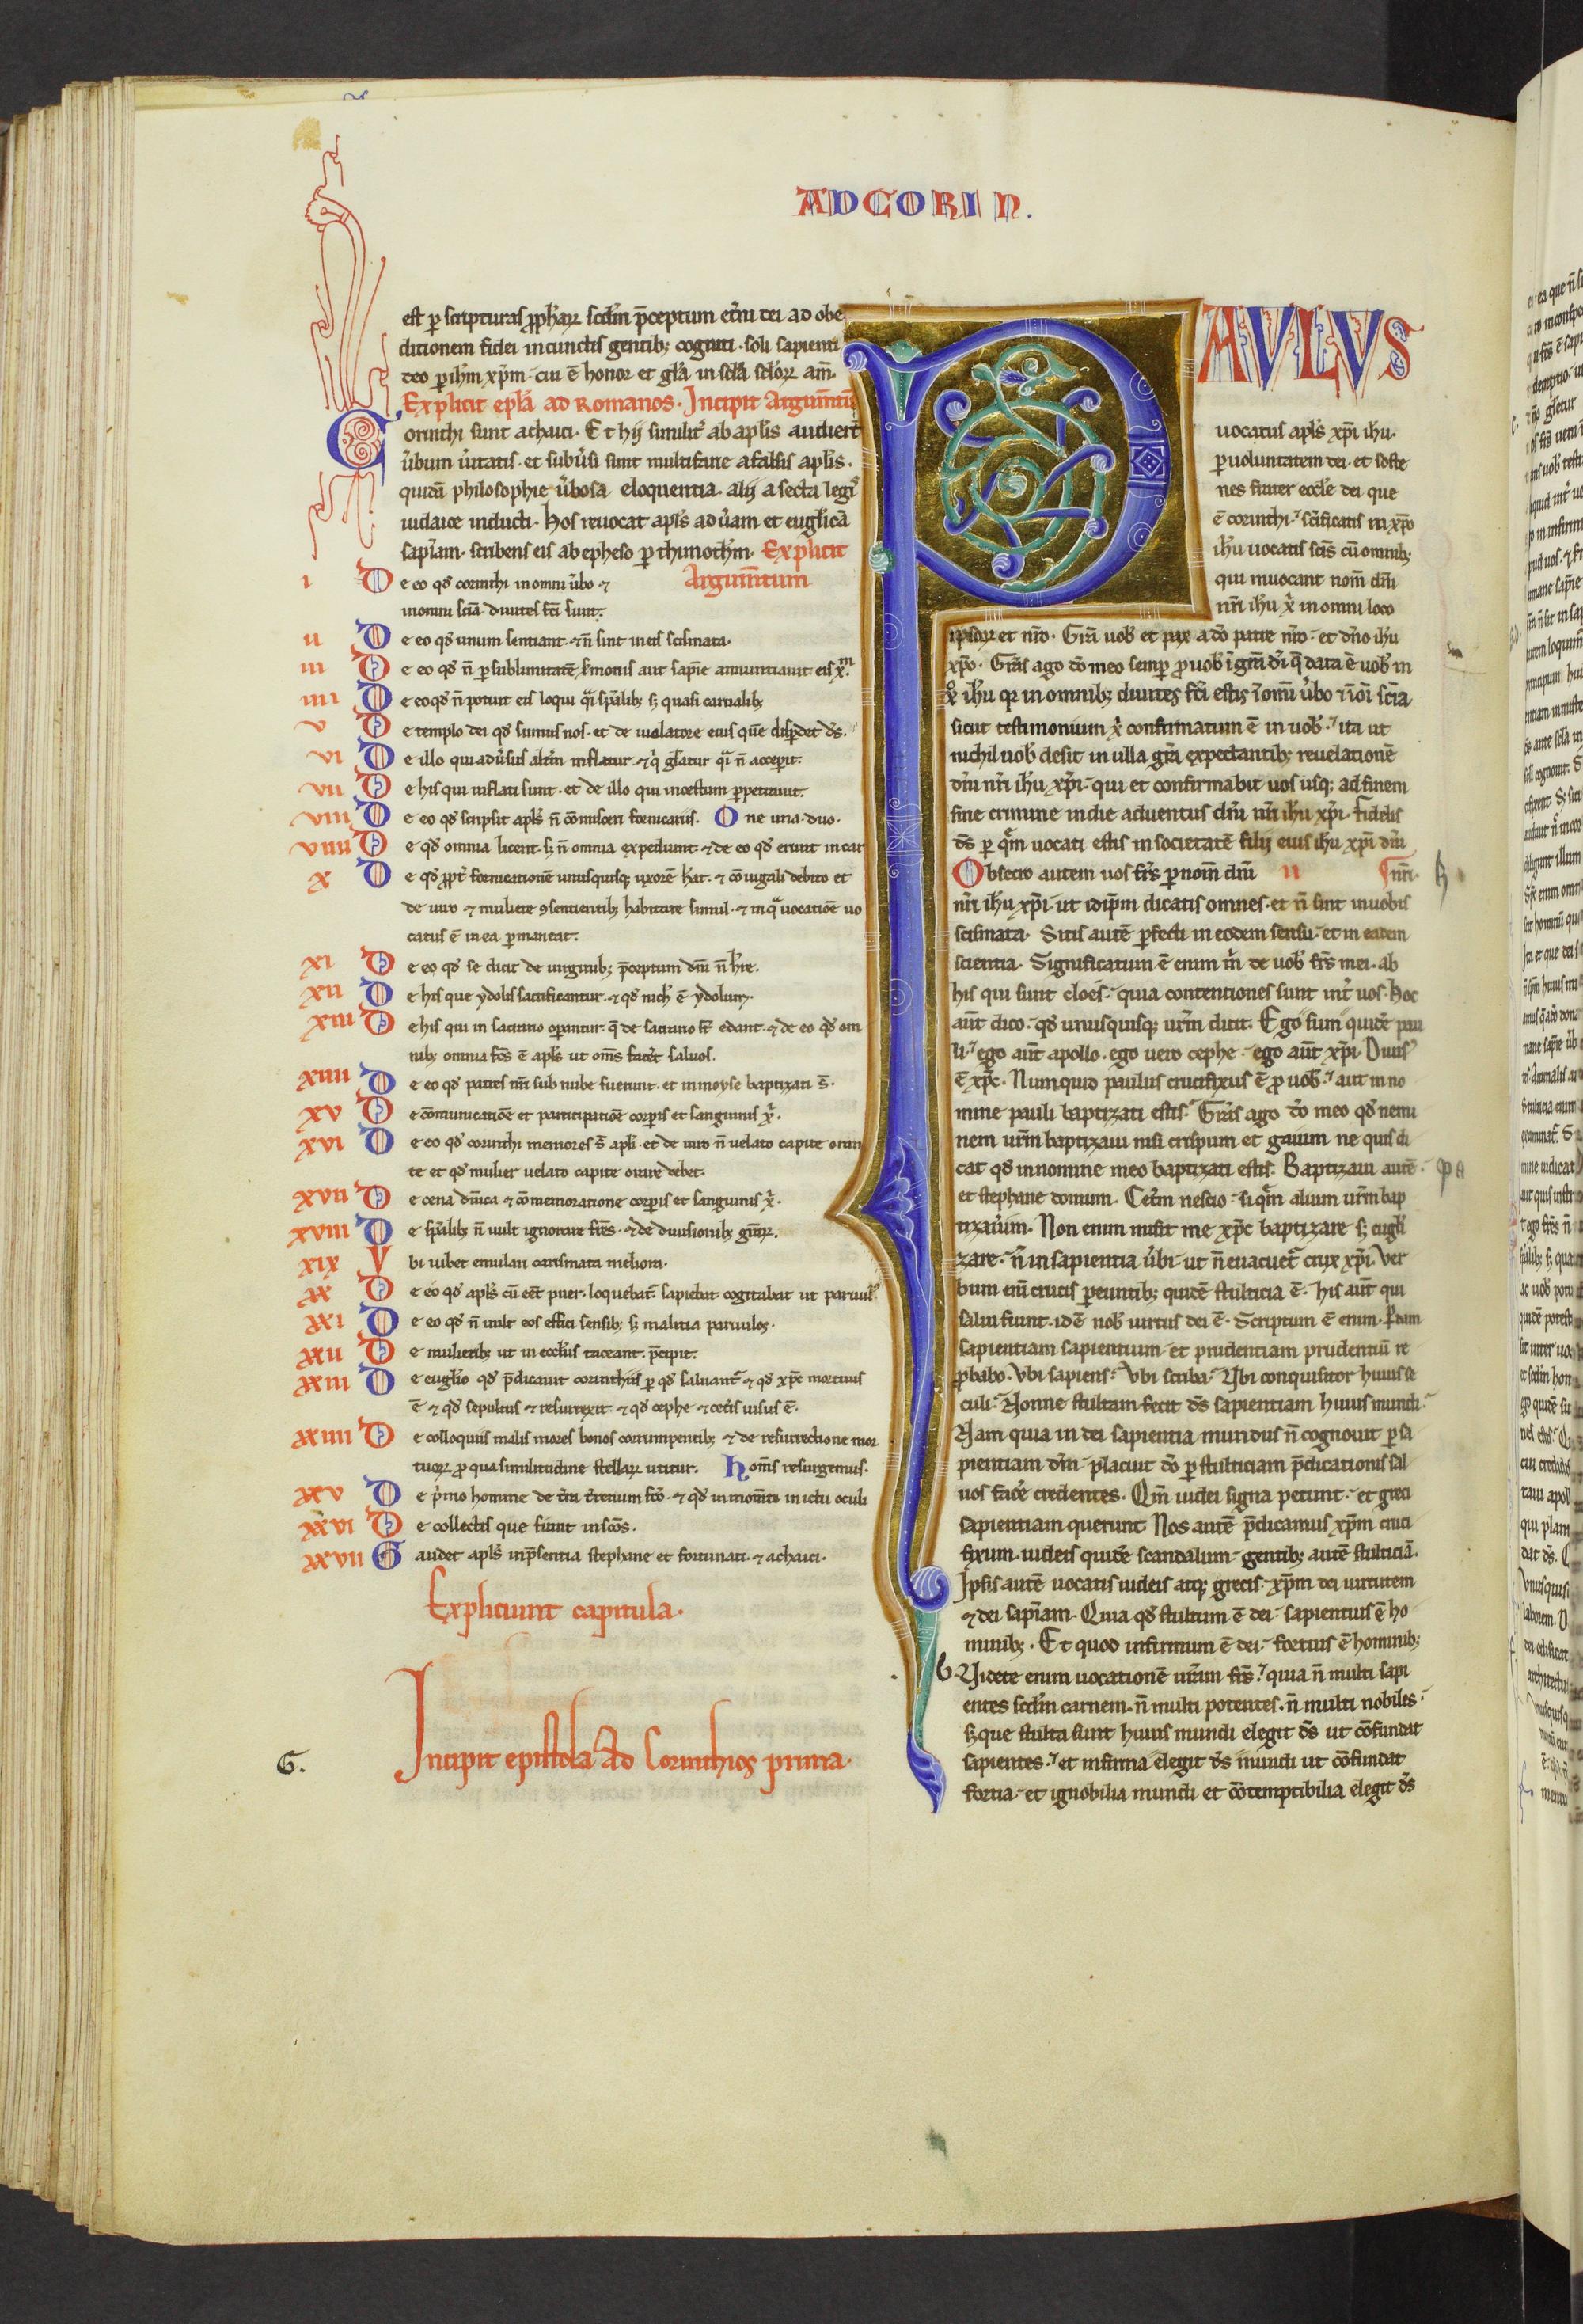 AD CORIN.
est ꝑ scripturas ꝓph'aꝝ scd'm p̄ceptum et'ni dei ad obe
ditionem fidei in cunctis gentibꝫ cogniti. soli sapienti
deo ꝑ ih'm xp̄m. cui ē honor et gl'a in scl'a scl'oꝝ am̄.
Explicit ep̄la ad Romanos. Incipit Argum̄tū
Corinthi sunt achaici. Et hij similit' ab apl'is audiert̄
u'bum u'itatis. et subu'si sunt multifarie a falsis apl'is.
quidā philosophie u'bosa eloquentia. alij a secta legis
iudaice inducti. Hos reuocat apl's ad u'am et eugl'icā
sap'iam. scribens eis ab epheso ꝑ thimoth'm. Explicit
Argum̄tum
i De eo qd' corinthi in omni u'bo ⁊
in omni sciā diuites fc̄i sunt.
ii De eo qd' unum sentiant. ⁊ n̄ sint in eis scismata.
iii De eo qd' n̄ ꝑ sublimitatē s'monis aut sap'ie annuntiauit eis x̄m.
iiii De eo qd' n̄ potuit eis loqui q'i sp'alibꝫ sꝫ quasi carnalibꝫ
v De templo dei qd' sumus nos. et de uiolatore eius quē disꝑdet ds̄.
vi De illo qui adu'sus alt'm inflatur. ⁊ q' gl'atur q'i n̄ acceperit.
vii De his qui inflati sunt. et de illo qui incestum ꝑpetrauit.
viii De eo qd' scripsit apl's n̄ cōmisceri fornicariis. One una duo.
viiii De qd' omnia licent. sꝫ n̄ omnia expediunt. ⁊ de eo qd' erunt in car
x De qd' ꝓpt' fornicationē unusquisqꝫ uxorē h'at. ⁊ cōiugali debito et
de uiro ⁊ muliere ꝯsentientibꝫ habitare simul. ⁊ in q'a uocatiōe uo
catus ē in ea ꝑmaneat.
xi De eo qd' se dicit de uirginibꝫ p̄ceptum dn̄i n̄ h're.
xii De his que ydolis sacrificantur. ⁊ qd' nich' ē ydolum.
xiii De his qui in sacrario oꝑantur. q̄ de sacrario st̄ edant. ⁊ de eo qd' om
nibꝫ omnia fcs̄ ē apl's ut om̄s facer̄t saluos.
xiiii De eo qd' patres nr̄i sub nube fuerunt. et in moyse baptizati s̄.
xv De cōmunicatiōe et participatiōe corꝑis et sanguinis x̄.
xvi De eo qd' corinthi memores s̄ apl'i. et de uiro n̄ uelato capite oran
te et qd' mulier uelato capite orare debet.
xvii De cena dn̄ica ⁊ cōmemoratione corꝑis et sanguinis x̄.
xviii De sp'alibꝫ n̄ uult ignorare fr̄es. ⁊ de diuisionibꝫ gr̄aꝝ.
xix Vbi iubet emulari carismata meliora.
xx De eo qd' apl's cū eēt puer. loquebat'. sapiebat. cogitabat ut paruul'.
xxi De eo qd' n̄ uult eos effici sensibꝫ sꝫ malitia paruulos.
xxii De mulieribꝫ ut in eccl'iis taceant. p̄cipit.
xxiii De eugl'io qd' p̄dicauit corinthiis ꝑ qd' saluant'. ⁊ qd' xp̄c mortuus
ē ⁊ qd' sepultus ⁊ resurrexit. ⁊ qd' cephe ⁊ cet'is uisus ē.
xxiiii De colloquiis malis mores bonos corrumpentibꝫ. ⁊ de resurrectione mor
tuoꝝ ꝓ qua similitudine stellaꝝ utitur. Hom̄s resurgemus.
xxv De p'mo homine de t'ra t'renum fc̄o. ⁊ qd' in mom̄to in ictu oculi
xxvi De collectis que fiunt in scōs.
xxvii Gaudet apl's in p̄sentia stephane et fortunati. ⁊ achaici.
Expliciunt capitula.
G.
Incipit epistola ad Corinthios prima.
PAVLVS
uocatus apl's xp̄i ih'u.
ꝑ uoluntatem dei. et soste
nes frater eccl'e dei que
ē corinthi. sc̄ificatis in xp̄o
ih'u uocatis scīs cū omnibꝫ
qui inuocant nom̄ dn̄i
nr̄i ih'u x̄ in omni loco
ipsoꝝ et nr̄o. Gr̄a uob' et pax a dō patre nr̄o. et dn̄o ih'u
xp̄o. Gr̄as ago dō meo semꝑ ꝓ uob' ī gr̄a di' q̄ data ē uob' in
x̄o ih'u qꝛ in omnibꝫ diuites fc̄i estis ī om̄i u'bo ⁊ ī oī sciā
sicut testimonium x̄ confirmatum ē in uob'. ita ut
nichil uob' desit in ulla gr̄a expectantibꝫ reuelationē
dn̄i nr̄i ih'u xp̄i. qui et confirmabit uos usqꝫ ad finem
sine crimine in die aduentus dn̄i nr̄i ih'u xp̄i. Fidelis
ds̄ ꝑ q'm uocati estis in societatē filij eius ih'u xp̄i dn̄i
Obsecro autem uos fr̄s ꝑ nom̄ dn̄i ii nr̄i.
nr̄i ih'u xp̄i. ut idip̄m dicatis omnes. et n̄ sint in uobis
scismata. Sitis autē ꝑfecti in eodem sensu. et in eadem
scientia. Significatum ē enim m' de uob' fr̄s mei. ab
his qui sunt cloes. quia contentiones sunt int' uos. Hoc
aūt dico. qd' unusquisqꝫ ur̄m dicit. Ego sum quidē pau
li. ego aūt apollo. ego uero cephe. ego aūt xp̄i. Diuis'
ē xp̄c. Numquid paulus crucifixus ē ꝓ uob'. aut in no
mine pauli baptizati estis. Gr̄as ago dō meo qd' nemi
nem ur̄m baptizaui nisi crispum et gaium. ne quis di
cat qd' in nomine meo baptizati estis. Baptizaui autē
et stephane domum. Cet'm nescio. si q'm alium ur̄m bap
tizau'im. Non enim misit me xp̄c baptizare. sꝫ eugl'i
zare. n̄ in sapientia u'bi. ut n̄ euacuet' crux xp̄i. Ver
bum eni' crucis ꝑeuntibꝫ quidē stulticia ē. his aūt qui
salui fiunt. id ē nob' uirtus dei ē. Scriptum ē enim. Perdam
sapientiam sapientium. et prudentiam prudentiū re
probabo. Vbi sapiens. Vbi scriba. Vbi conquisitor huius se
culi. Nonne stultam fecit ds̄ sapientiam huius mundi.
Nam quia in dei sapientia mundus n̄ cognouit ꝑ sa
pientiam dm̄. placuit dō ꝑ stulticiam p̄dicationis sal
uos facer̄e credentes. Qm̄ iudei signa petunt. et greci
sapientiam querunt. Nos autē p̄dicamus xp̄m cruci
fixum. iudeis quidē scandalum. gentibꝫ autē stulticiā.
Ipsis autē uocatis iudeis atqꝫ grecis. xp̄m dei uirtutem
⁊ dei sap'iam. Quia qd' stultum ē dei. sapientius ē ho
minibꝫ. Et quod infirmum ē dei. fortius ē hominibꝫ
b. Videte enim uocationē ur̄am fr̄s. quia n̄ multi sapi
entes scd'm carnem. n̄ multi potentes. n̄ multi nobiles.
sꝫ que stulta sunt huius mundi elegit ds̄ ut cōfundat
sapientes. et infirma elegit ds̄ mundi ut cōfundat
fortia. et ignobilia mundi et cōtemptibilia elegit ds̄